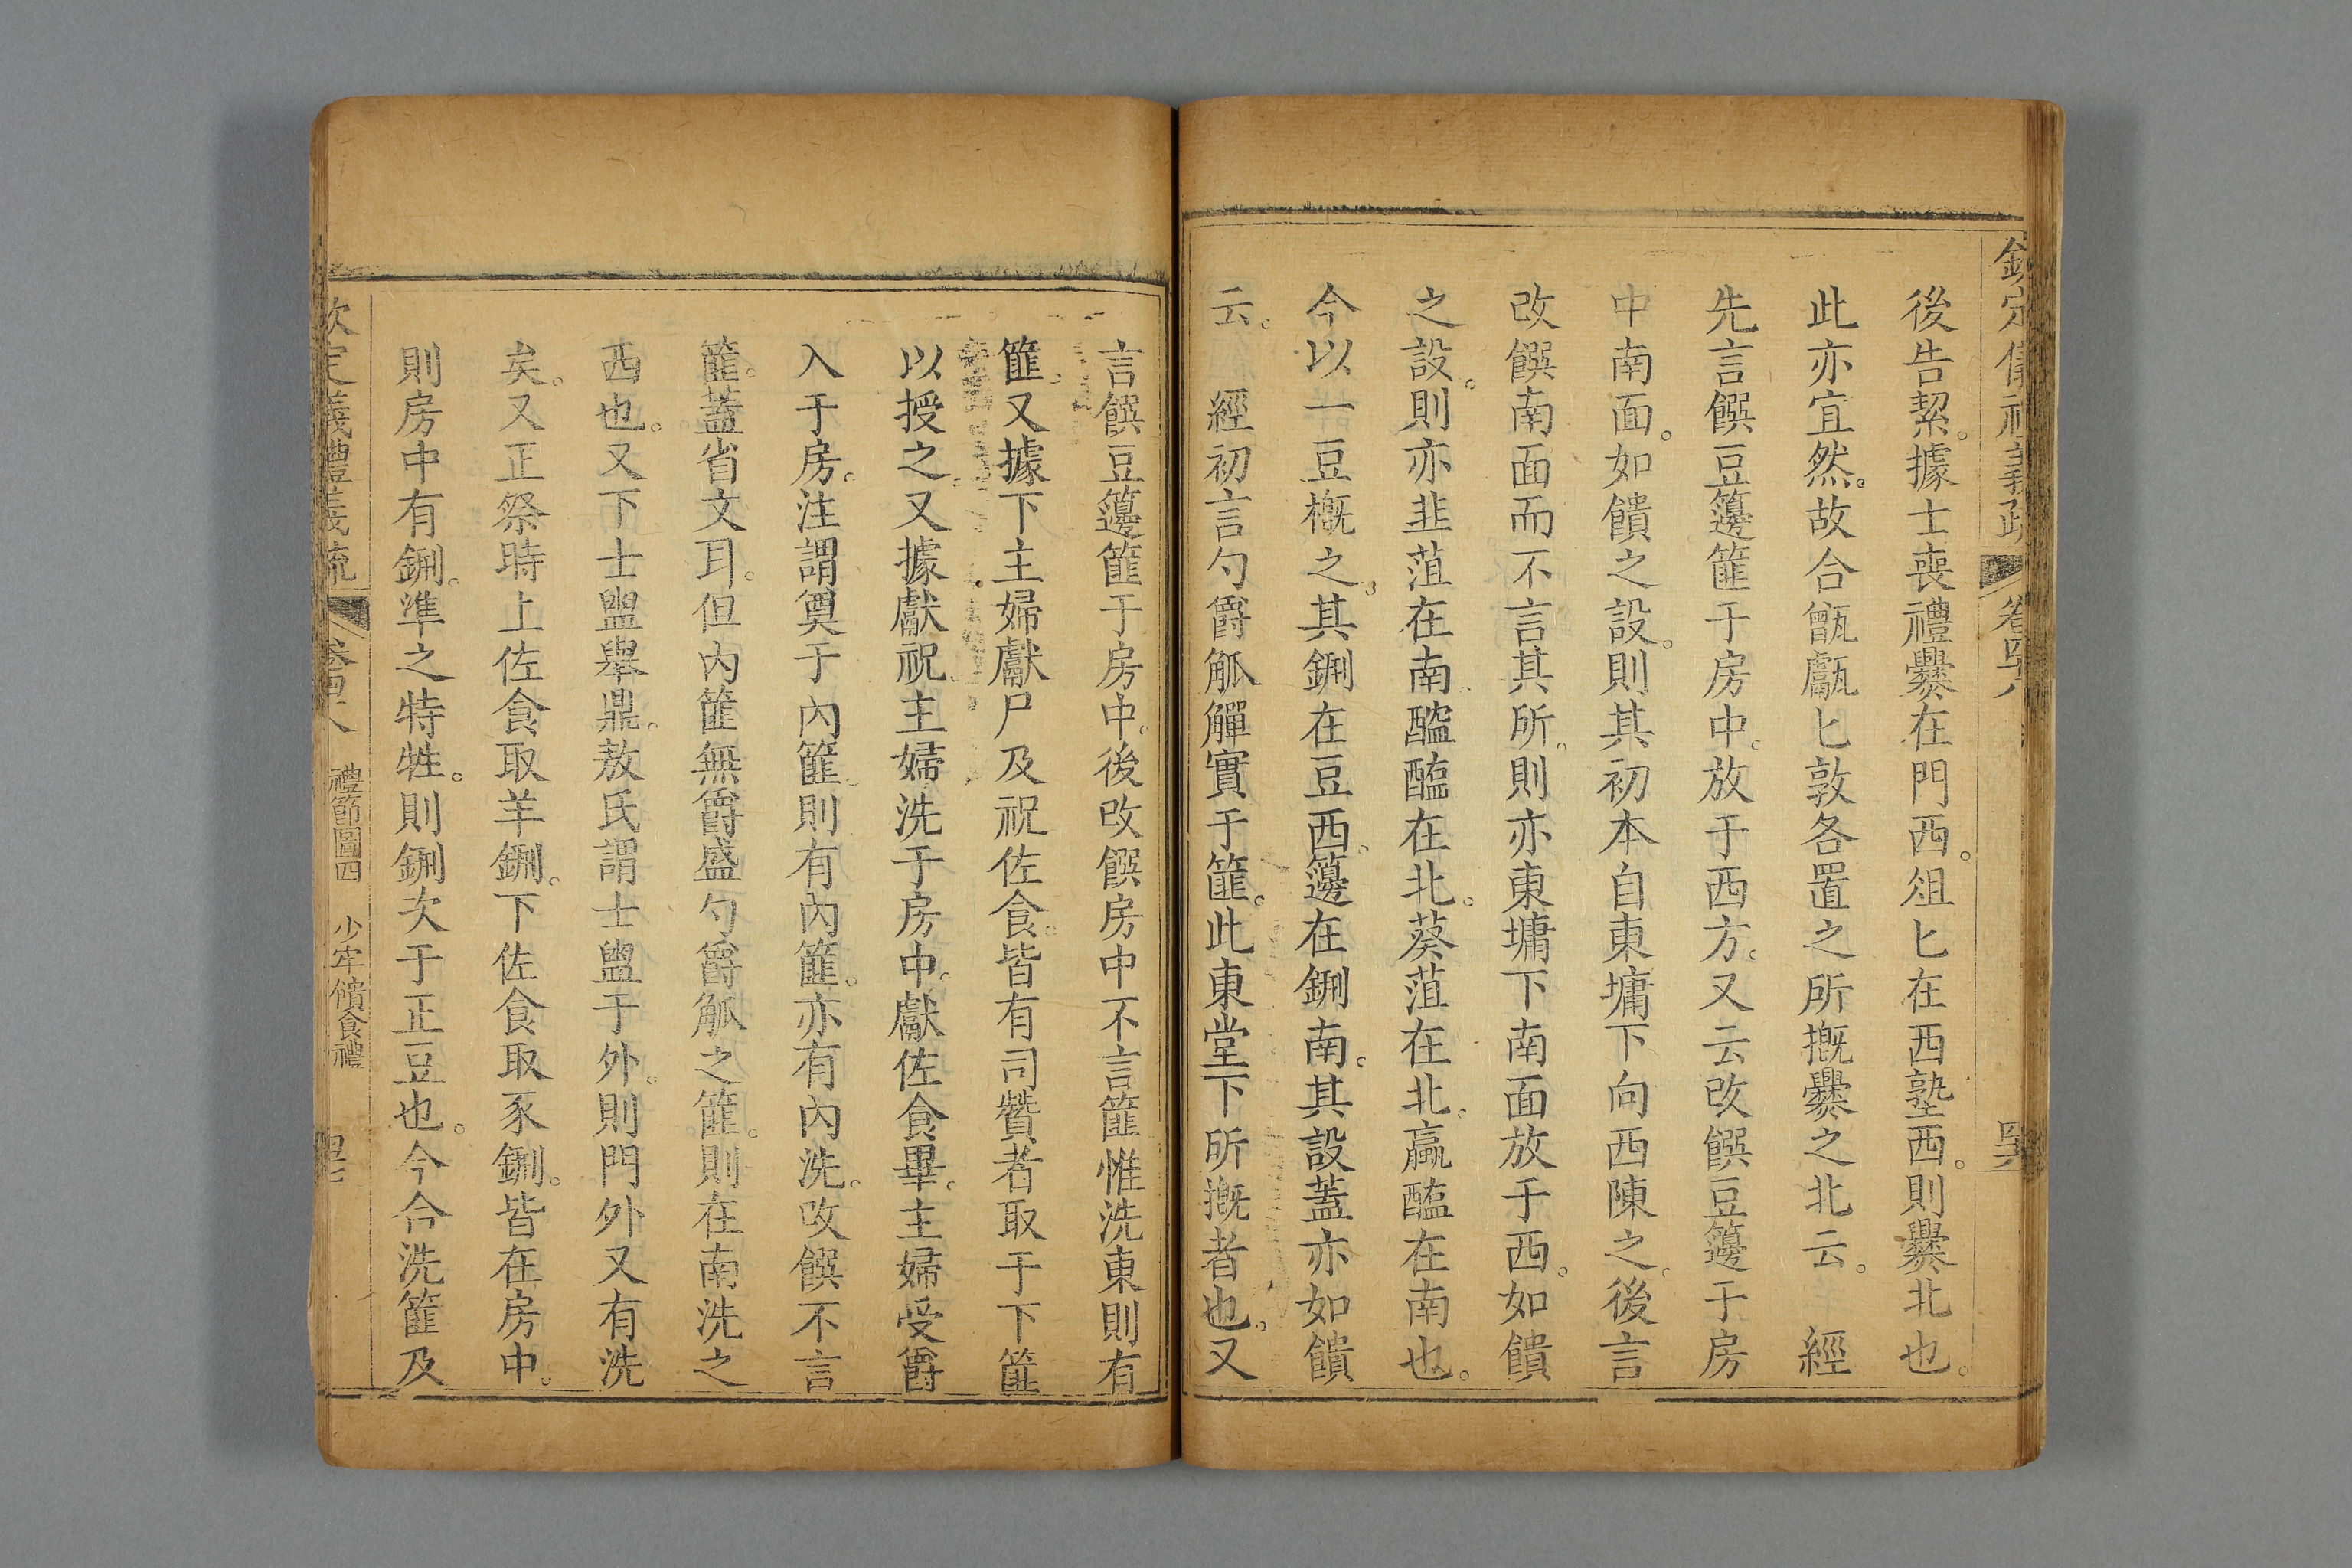 欽定儀禮義疏 卷四十八
後告絜。據士喪禮爨在門西。俎匕在西塾西。則爨北也。
此亦宜然。故合甑甗匕敦各置之所摡爨之北云。 經
先言饌豆籩篚于房中。放于西方。又云改饌豆籩于房
中南面。如饋之設。則其初本自東墉下向西陳之。後言
改饌南面而不言其所。則亦東墉下南面放于西。如饋
之設。則亦韭菹在南。醓醢在北。葵菹在北。蠃醢在南也。
今以一豆概之。其鉶在豆西。籩在鉶南。其設蓋亦如饋
云。 經初言勺爵觚觶實于篚。此東堂下所摡者也。又
言饌豆籩篚于房中。後改饌房中不言篚惟洗東則有
篚。又據下主婦獻尸及祝佐食。皆有司贊者取于下篚
以授之。又據獻祝。主婦洗于房中。獻佐食畢。主婦受爵
入于房。注謂奠于內篚。則有內篚。亦有內洗。改饌不言
篚。蓋省文耳。但內篚無爵盛勺爵觚之篚。則在南洗之
西也。又下士盥舉鼎。敖氏謂士盥于外。則門外又有洗
矣。又正祭時上佐食取羊鉶。下佐食取豕鉶。皆在房中。
則房中有鉶。準之特牲。則鉶次于正豆也。今合洗篚及
欽定義禮義疏 卷四十八 禮節圖四 少牢饋食禮